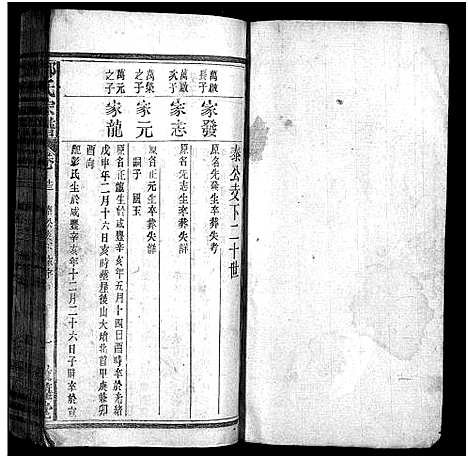 泰公支下二十世
萬啟長子
家發
原名先發生卒葬失考
萬啟次子
家志
原名先志生卒葬失詳
萬榮之子
家元
原名正元生卒葬失詳
嗣子 國玉
萬元之子
家龍
原名正龍生於咸豐辛亥年五月十四日酉時卒於光緒
戊申年二月十六日亥時葬屋後山大墳北首甲庚兼卯
酉向
配彭氏生於咸豐辛亥年十二月二十六日子時卒於宣
氏宗譜